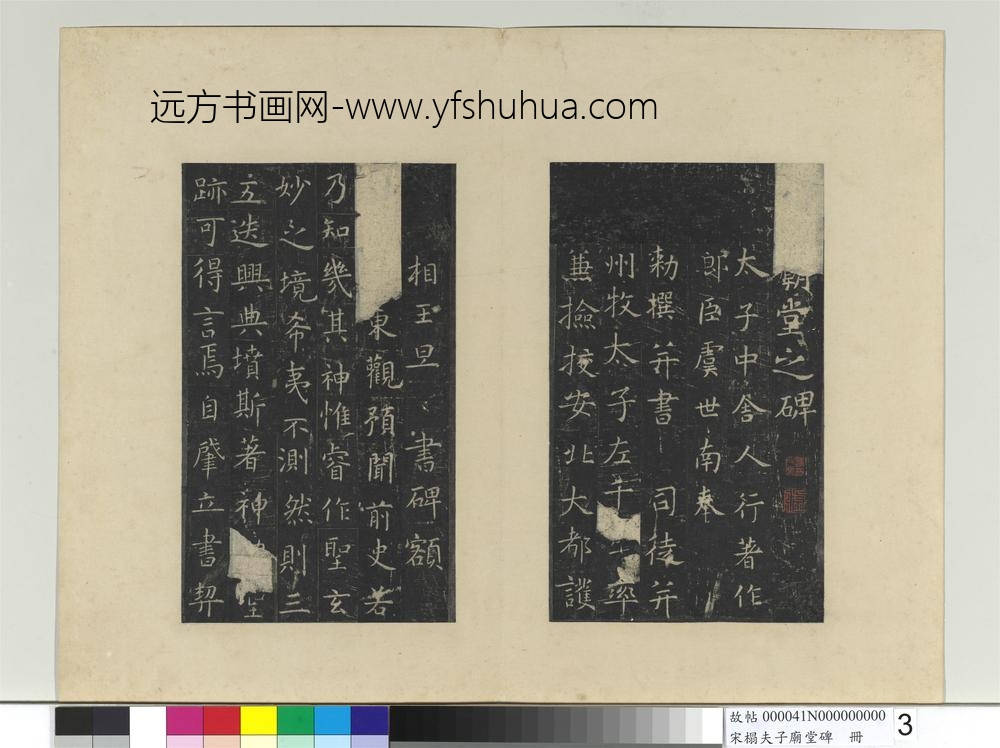 远方书画网-www.yfshuhua.com
廟堂之碑
太子中舍人行著作
郎臣虞世南奉
勅撰并書 司徒并
州牧太子左千 率
兼撿挍安北大都護
相王旦書碑額
東觀預聞前史若
乃知幾其神惟睿作聖玄
妙之境希夷不測然則三
五迭興典墳斯著神
跡可得言焉自肇立書契
故帖 000041N000000000
宋榻夫子廟堂碑 冊
3